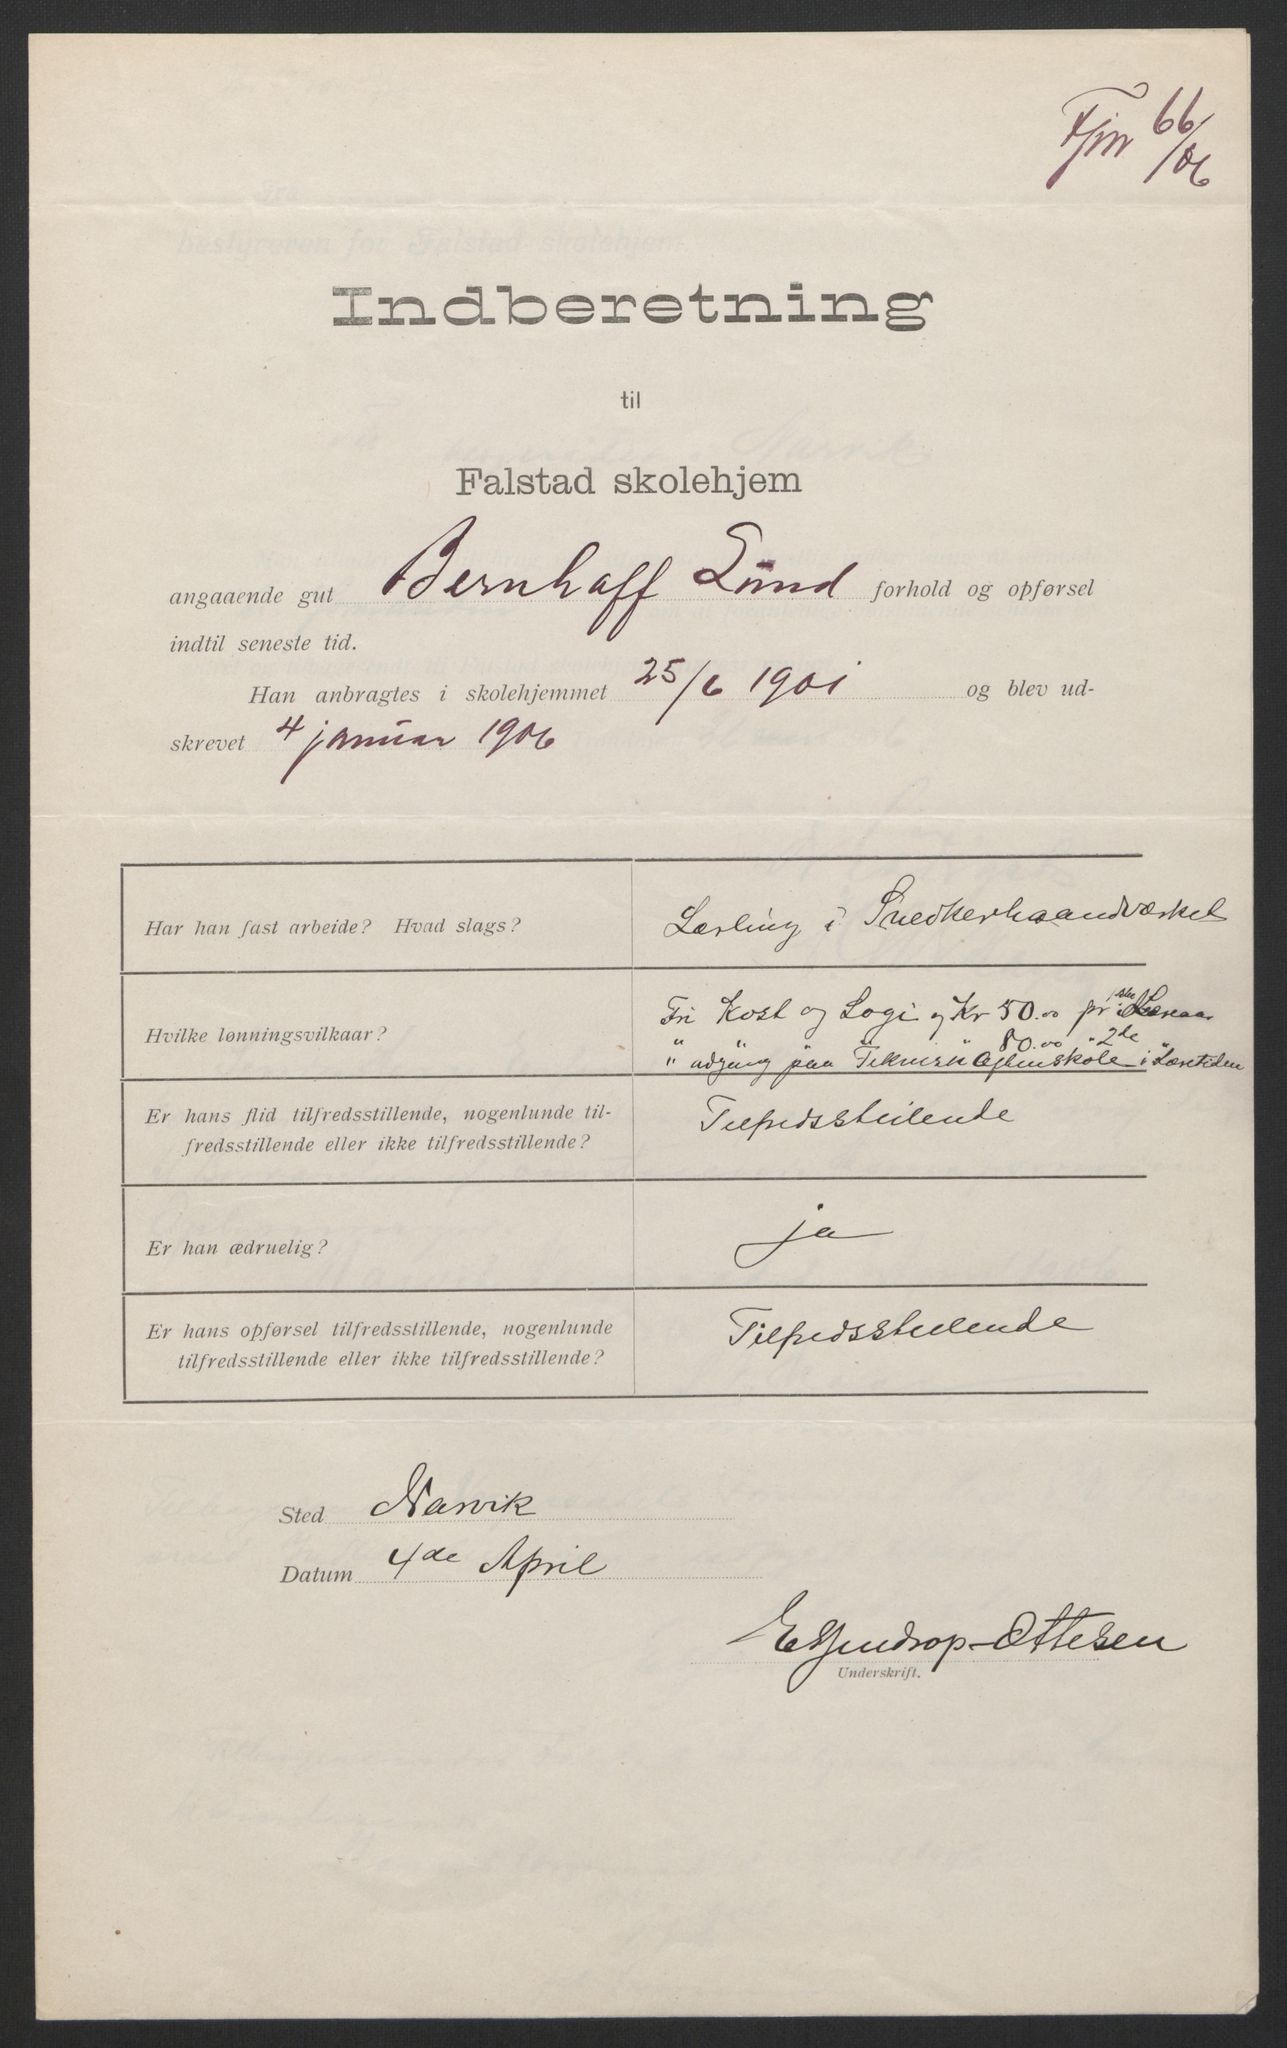 66/06
Indberetning
til
Falstad skolehjem
angaaende gut Bernhaff Lund forhold og opførsel
indtil seneste tid.
Han anbragtes i skolehjemmet 25/6 1901 og blev ud-
skrevet 4 januar 1906
Har han fast arbeide? Hvad slags? Lærling i Snedkerhaandværket
Hvilke lønningsvilkaar? Fri Kost og Logi og Kr 50.00 pr 1ste Læreaar
80.00 " 2de
" adgang paa Teknisk Aftenskole i Læretiden
Er hans flid tilfredsstillende, nogenlunde til-
fredsstillende eller ikke tilfredsstillende? Tilfredsstillende
Er han ædruelig? ja
Er hans opførsel tilfredsstillende, nogenlunde
tilfredsstillende eller ikke tilfredsstillende? Tilfredsstillende
Sted Narvik
Datum 4de April
Ottesen
Underskrift.